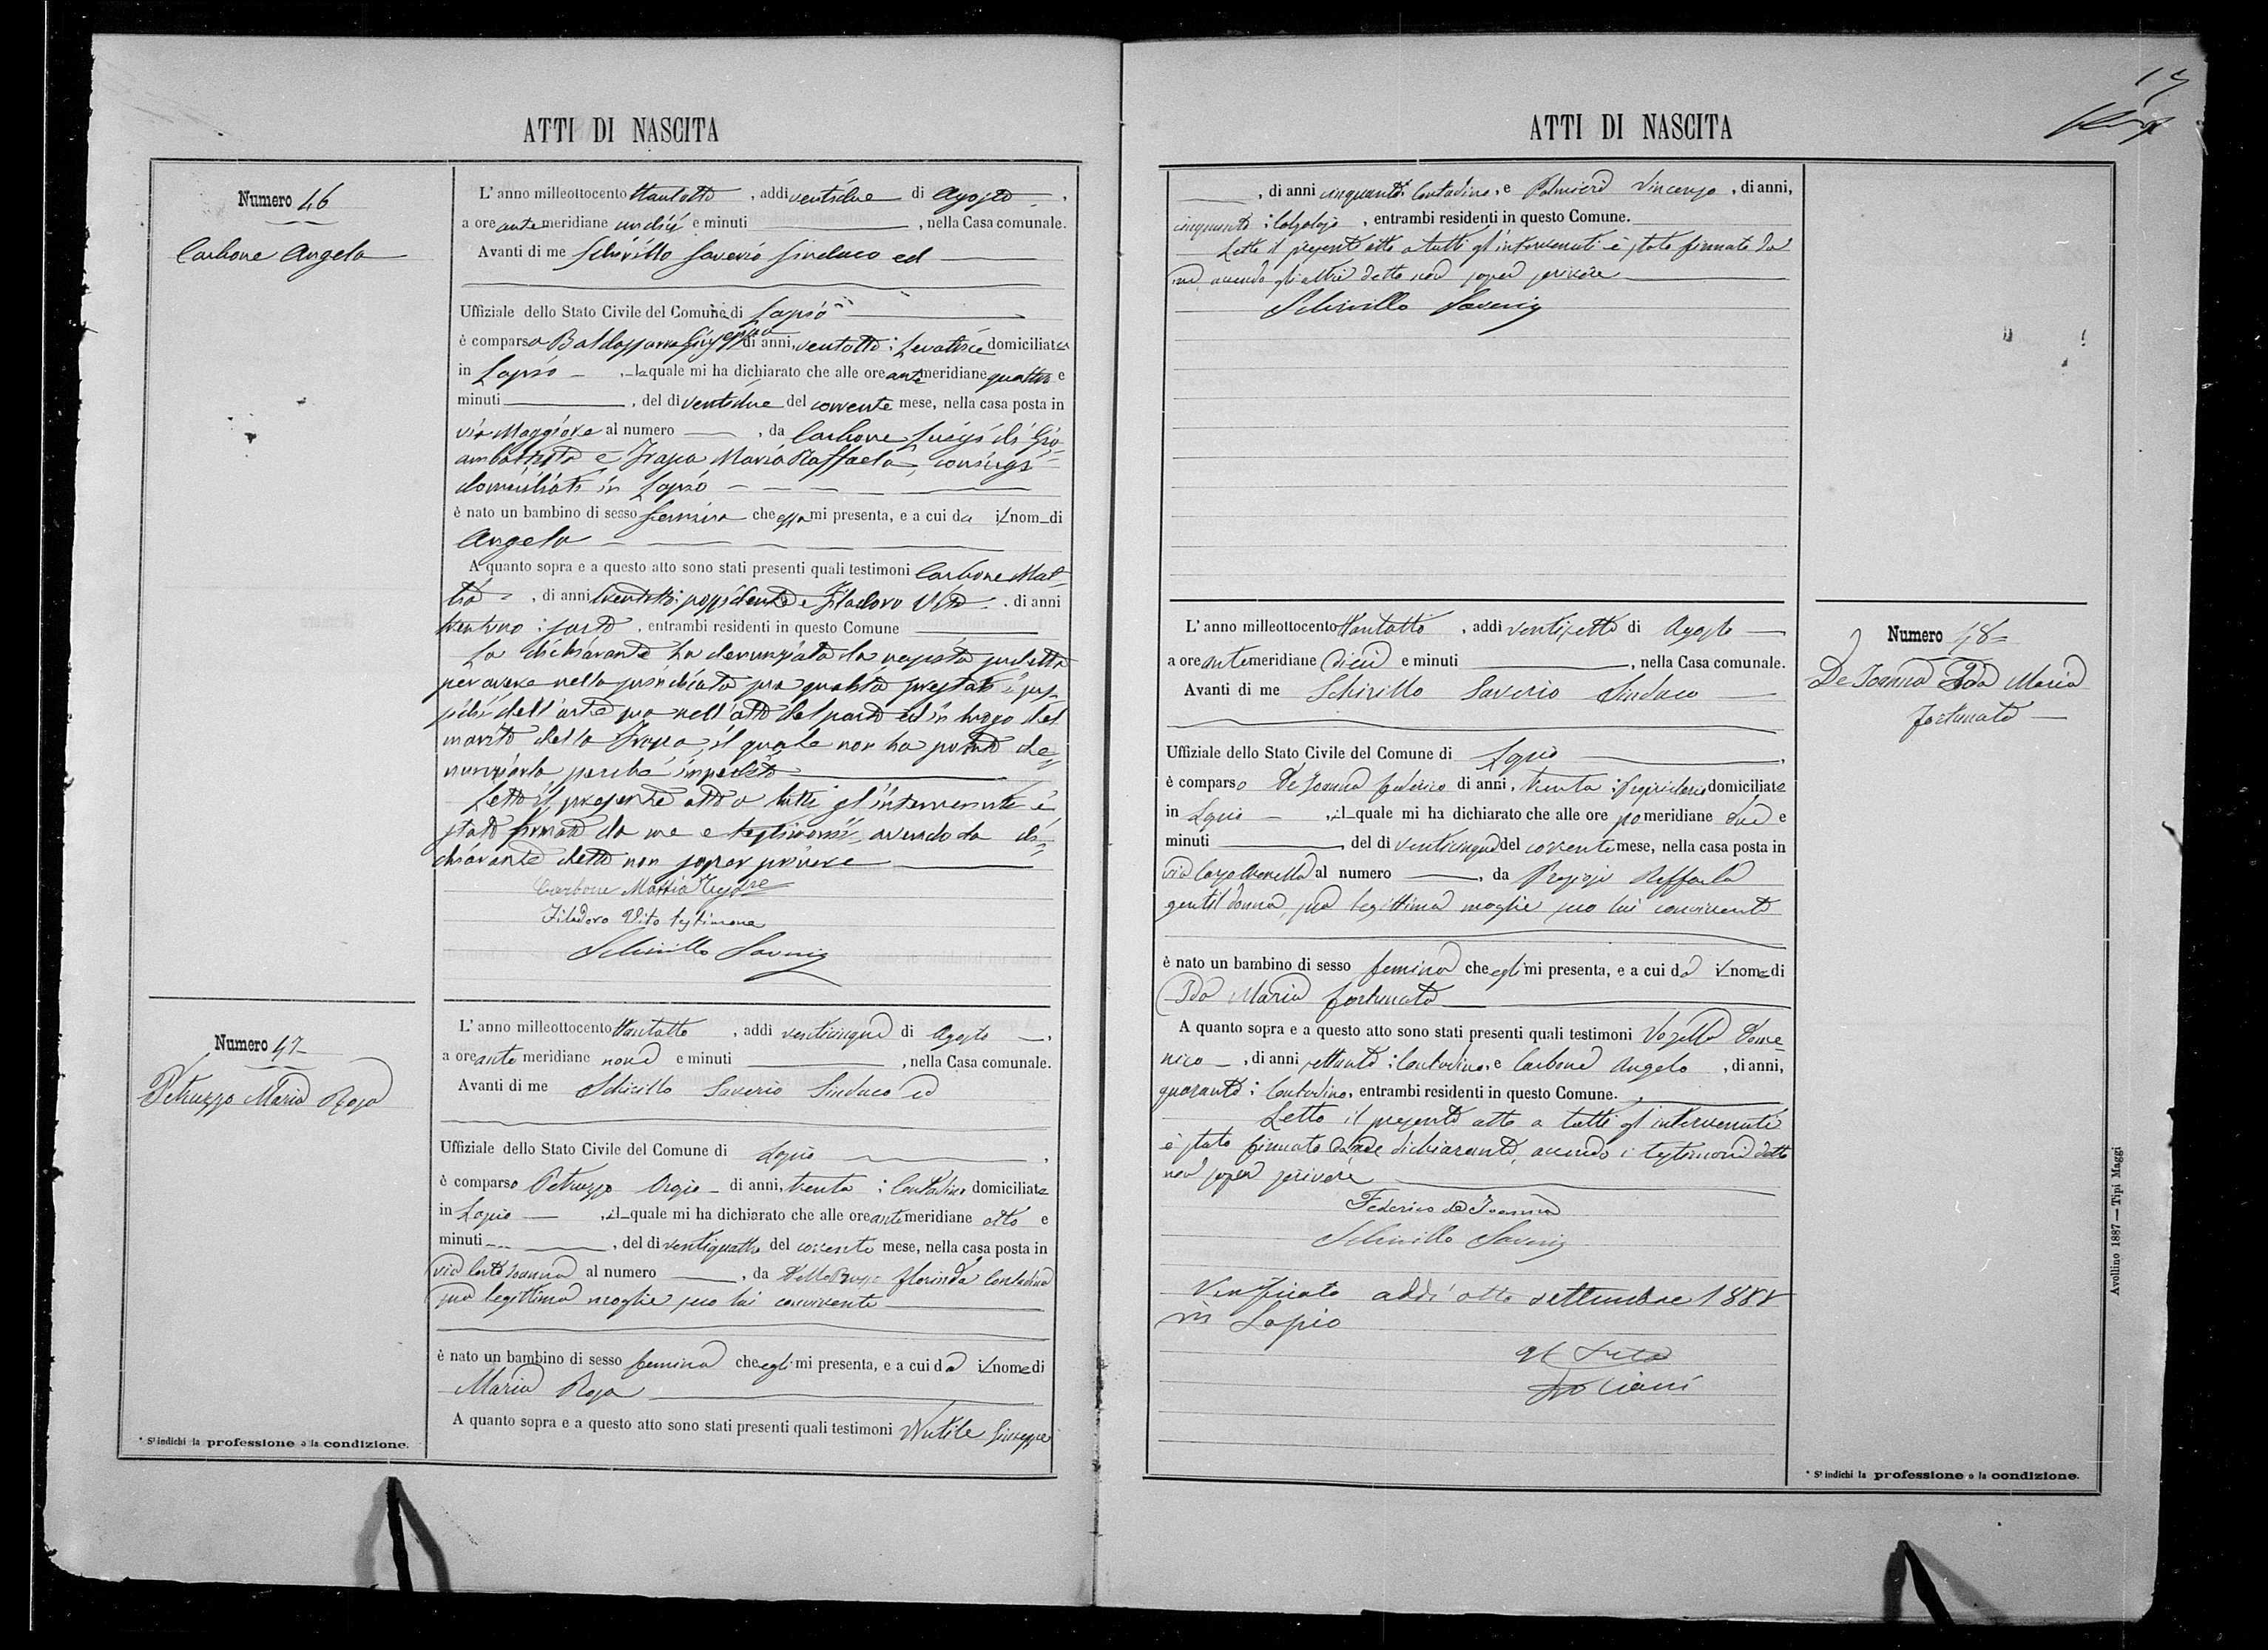 ATTI DI NASCITA
Numero 46
Carbone Angela
L'anno milleottocento ttantotto, addì ventidue di Agosto,
a ore antemeridiane undici e minuti , nella Casa comunale.
Avanti di me Schirillo Saverio Sindaco ed
Uffiziale dello Stato Civile del Comune di Lapio
è comparsa Baldassarra Giuseppa di anni, ventotto; Levatrice domiciliata
in Lapio , la quale mi ha dichiarato che alle ore antemeridiane quattro e
minuti , del dì ventidue del corrente mese, nella casa posta in
via Maggiore al numero , da Carbone Luigi di Gio-
ambattista e Trapa Maria Raffaela, coniugi
domiciliati in Lapio
è nato un bambino di sesso femina che essa mi presenta, e a cui da il nom di
Angela
A quanto sopra e a questo atto sono stati presenti quali testimoni Carbone Mat-
tia , di anni ventotto; possidente e Filadoro Vito , di anni
trentuno; sarto , entrambi residenti in questo Comune
La dichiarante ha denunziata la nascita suddetta
per avere nella qualità prestati i
dell'arte sua nell'atto del parto ed in luogo del
marito della Trapa, il quale non ha potuto de-
nunziarla perchè impedito
Letto il presente atto a tutti gl'intervenuti è
stato firmato da me e testimoni, avendo la di-
chiarante detto non saper scrivere
Carbone Mattia
Filadoro Vito testimone
Schirillo Saverio
Numero 47
Petruzzo Maria Rosa
L'anno milleottocento ttantotto, addì venticinque di Agosto,
a ore antemeridiane nove e minuti , nella Casa comunale.
Avanti di me Schirillo Saverio Sindaco ed
Uffiziale dello Stato Civile del Comune di Lapio
è comparso Petruzzo di anni, trenta; Contadino domiciliato
in Lapio , il quale mi ha dichiarato che alle ore antemeridiane otto e
minuti , del dì ventiquattro del corrente mese, nella casa posta in
via al numero , da Florinda Contadina
sua legittima moglie seco lui convivente
è nato un bambino di sesso femina che egli mi presenta, e a cui dà il nome di
Maria Rosa
A quanto sopra e a questo atto sono stati presenti quali testimoni Nutile Giuseppe
* Si indichi la professione o la condizione.
ATTI DI NASCITA
, di anni cinquanta; Contadino, e Palmieri Vincenzo, di anni,
cinquanta; Calzolajo , entrambi residenti in questo Comune.
Letto il presente atto a tutti gl'intervenuti è stato firmato da
me, avendo gli altri detto non saper scrivere
Schirillo Saverio
L'anno milleottocento ttantotto, addì ventisette di Agosto
a ore antemeridiane dieci e minuti , nella Casa comunale.
Avanti di me Schirillo Saverio Sindaco
Uffiziale dello Stato Civile del Comune di Lapio
è comparso De Joanna Federico di anni, trenta; Proprietario domiciliato
in Lapio , il quale mi ha dichiarato che alle ore pomeridiane due e
minuti , del dì venticinque del corrente mese, nella casa posta in
via al numero , da Raffaela
gentildonna, sua legittima moglie seco lui convivente
è nato un bambino di sesso femina che egli mi presenta, e a cui dà il nome di
Ida Maria Fortunata
A quanto sopra e a questo atto sono stati presenti quali testimoni Vozella Dome-
nico , di anni settanta; Contadino, e Carbone Angelo , di anni,
quaranta; Contadino, entrambi residenti in questo Comune.
Letto il presente atto a tutti gl'intervenuti
è stato firmato da me dichiarante, avendo i testimoni detto
non saper scrivere
Federico de Joanna
Schirillo Saverio
Verificato addì otto settembre 1888
in Lapio
Numero 48
De Joanna Ida Maria
Fortunata
* Si indichi la professione o la condizione.
Avellino 1887 — Tipi Maggi